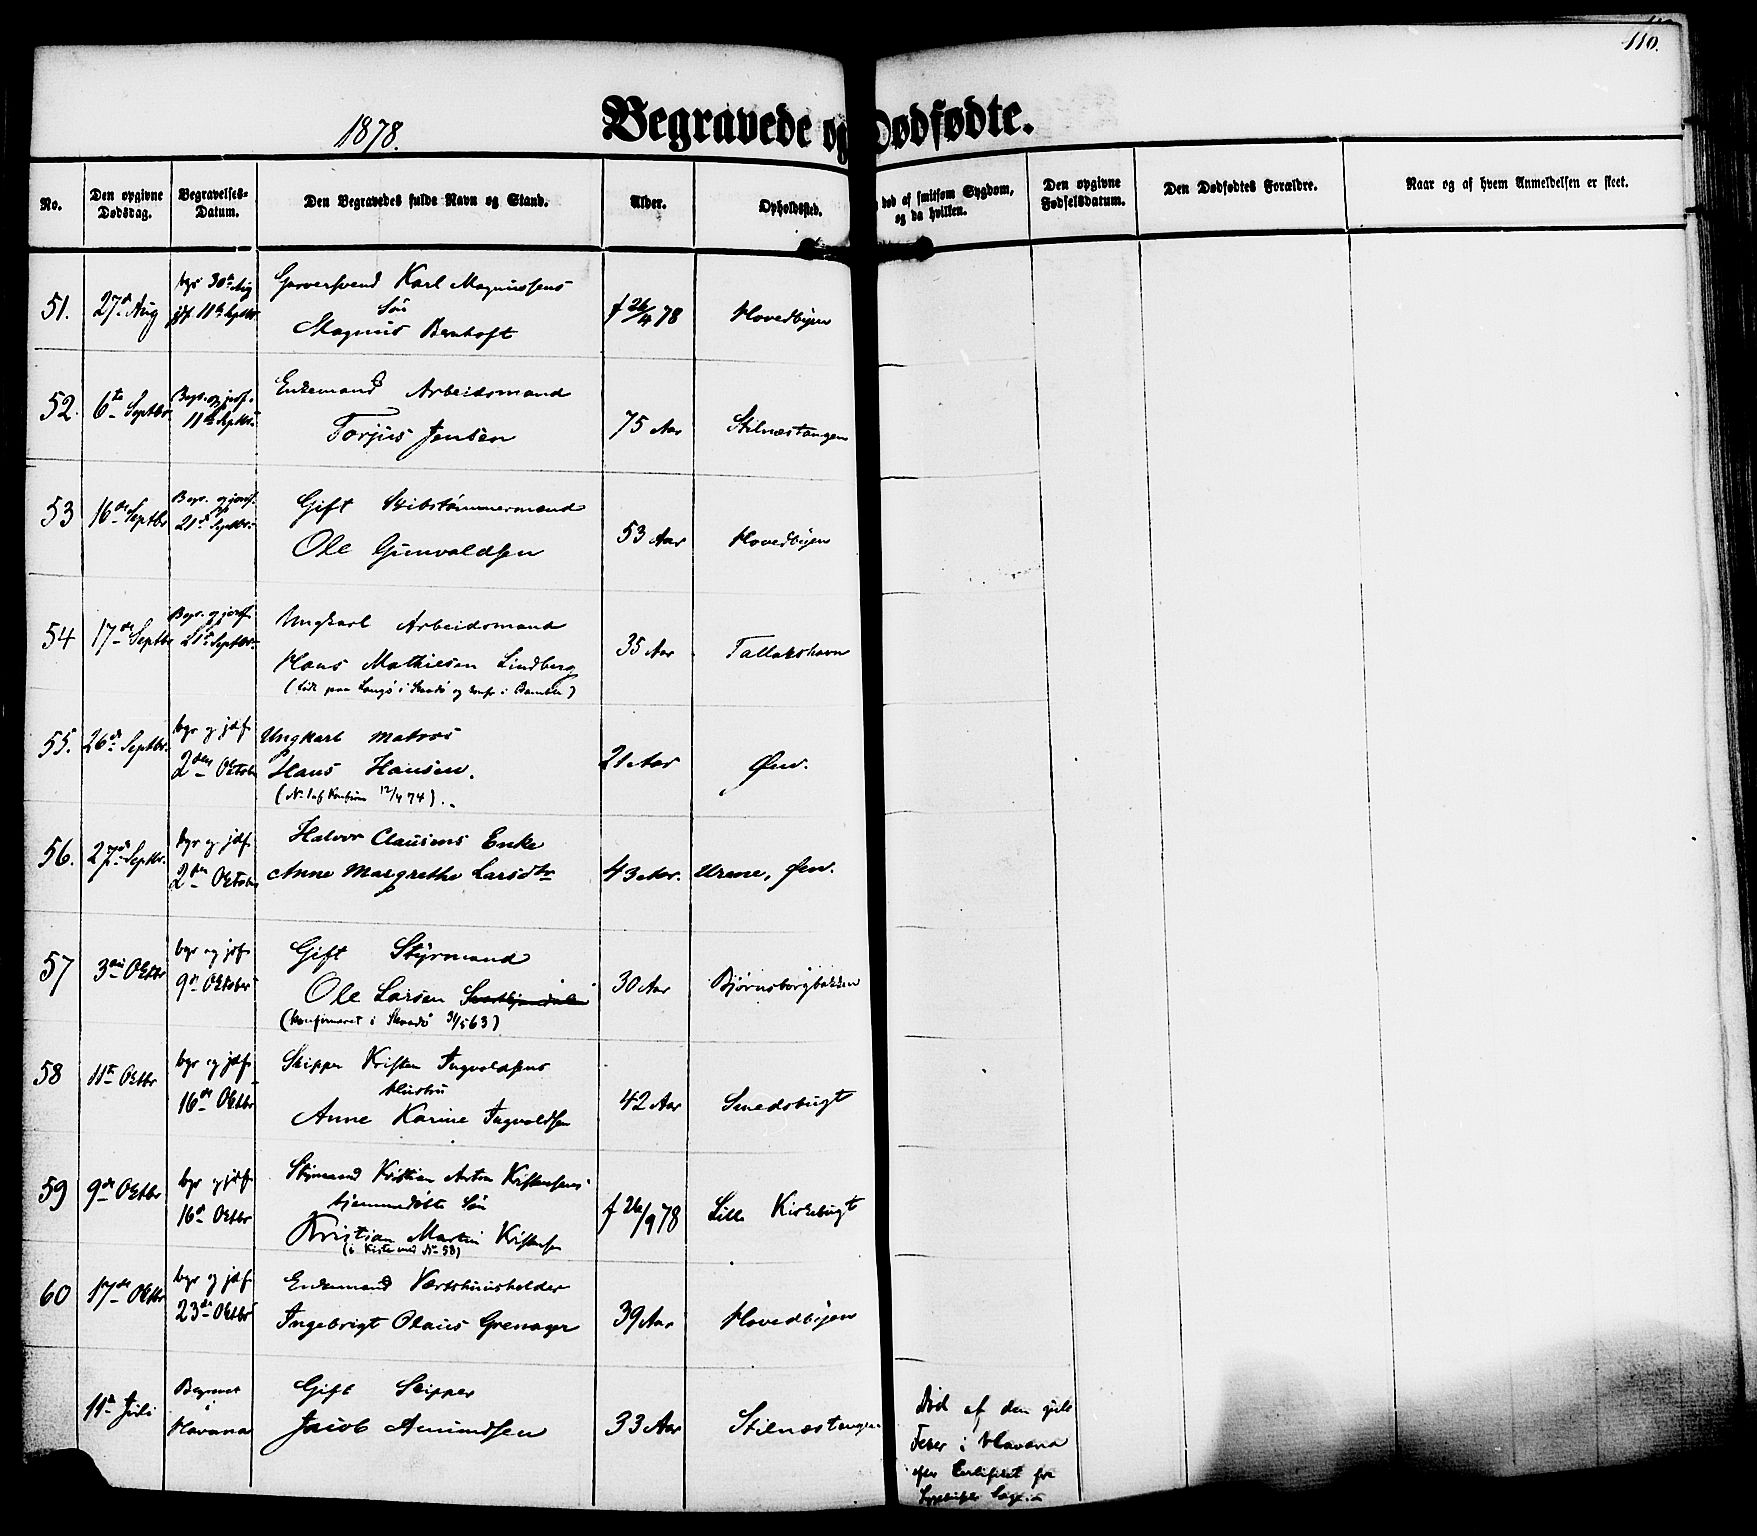 110.
1878.
Begravede og Dødfødte.
No.
Den opgivne Dødsdag.
Begravelses-Datum.
Den Begravedes fulde Navn og Stand.
Alder.
Opholdssted.
død af smitsom Sygdom, og da hvilken.
Den opgivne Fødselsdatum.
Den Dødfødtes Forældre.
Naar og af hvem Anmeldelsen er skeet.
51. 27de Aug
begr 30te Aug
jdf 11te Septbr
Garversvend Karl Magnussens
Søn
Magnus Bernhoft
f 26/4 78
Hovedbyen
52. 6te Septbr
Begr. og jordf.
11te Septbr
Enkemand Arbeidsmand
Torjus Jensen
75 Aar
Stilnæstangen
53 16de Septbr
Begr. og jordf.
21de Septbr
Gift Skibstømmermand
Ole Gunvaldsen
53 Aar
Hovedbyen
54 17de Septbr
Begr. og jordf.
21de Septbr
Ungkarl Arbeidsmand
Hans Mathiesen Lindberg
(født paa Langø i Skaadø og konf. i Bamble)
35 Aar
Tallakshavn
55. 26de Septbr.
begr og jdf
2den Octob
Ungkarl Matros
Hans Hansen.
(No 1 af Konfirm 12/4 74).
21 Aar
Øen.
56. 27de Septbr.
begr og jdf
2den Octob
Halvor Clausens Enke
Anne Margrethe Larsdtr
43 Aar.
Urene, Øen.
57 3die Octbr
begr og jdf
9de October
Gift Styrmand
Ole Larsen
(konfirmeret i Skaadø 31/5 63)
30 Aar
Bjørnsborgbakken
58 11te Octbr
begr og jdf
16de Octbr
Skipper Kristen Ingvoldsens
Hustru
Anne Karine Ingvoldsen
42 Aar
Smedsbugt
59 9de Octbr
begr og jdf
16de Octbr
Styrmand Kristian Anton Kristensens
hjemmedøbte Søn
Kristian Martin Kristensen
(i Kiste med No 58)
f 26/9 78
Lille Kirkebugt
60 17de Octbr
begr og jdf
23de Octbr
Enkemand Værtshuusholder
Ingebrigt Olaus Grenager
39 Aar
Hovedbyen
11te Juli
Begravet
i
Havana
Gift Skipper
Jacob Amundsen
33 Aar
Stilnæstangen
Død af den gule
Feber i Havana
efter Certifikat fra